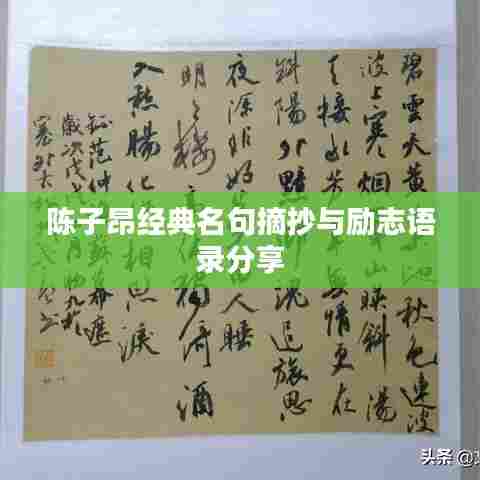 陈子昂经典名句摘抄与励志语
录分享
碧雲天黄地秋色連波
波上寒烟山映斜陽
天接芳草無情更在
斜陽外黯魂追旅思
夜深非好人睡
明月樓高休獨倚酒
入愁腸化相思淚
范仲蘇幕遮
歲次戊月
头条 @